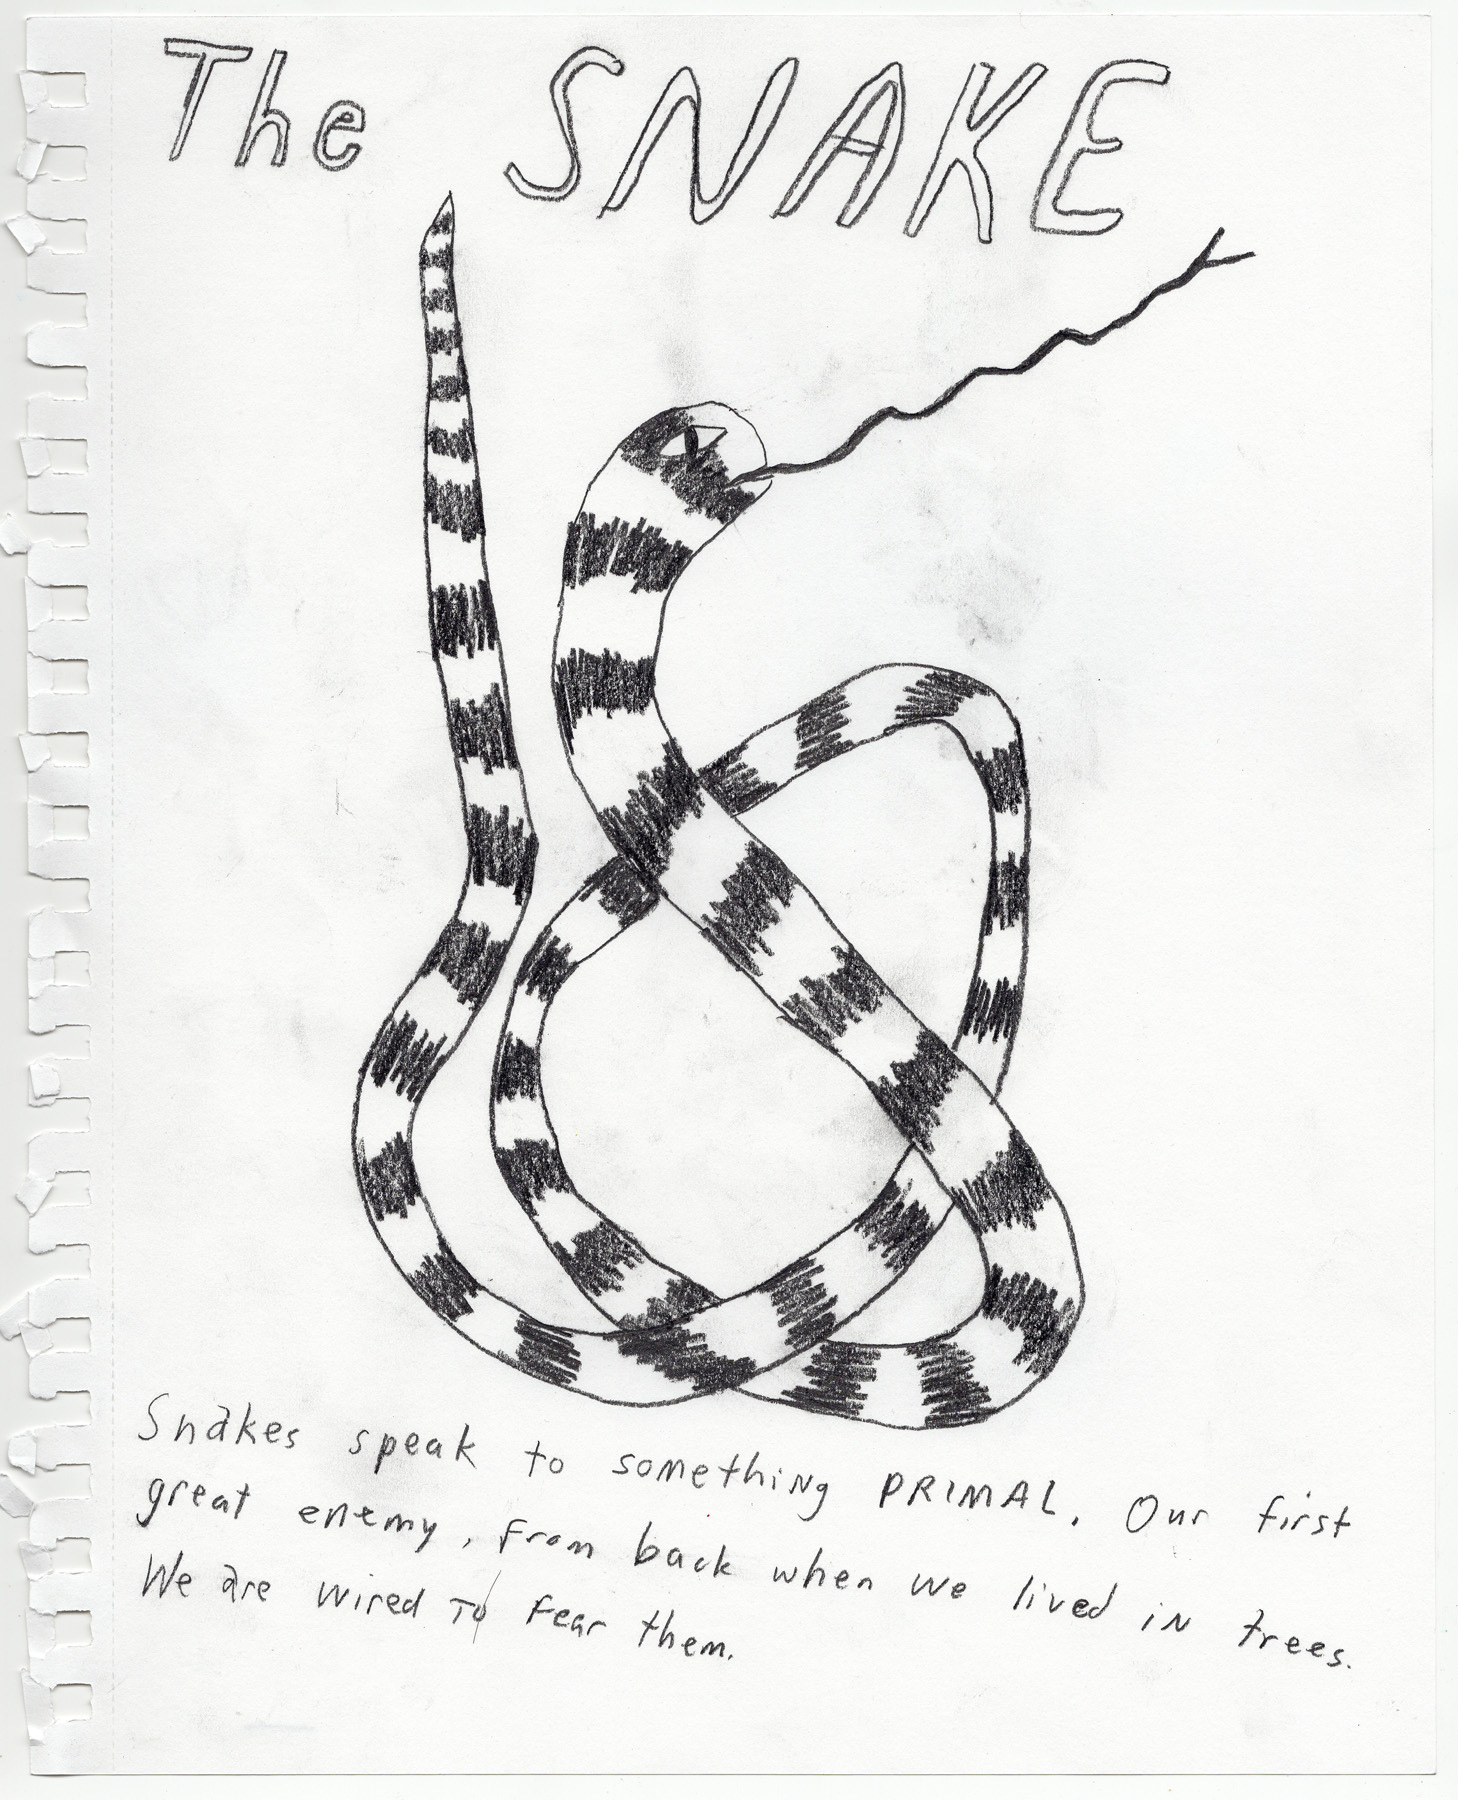 The SNAKE
Snakes speak to something PRIMAL. Our first
great enemy, from back when we lived in trees.
We are wired To fear them.